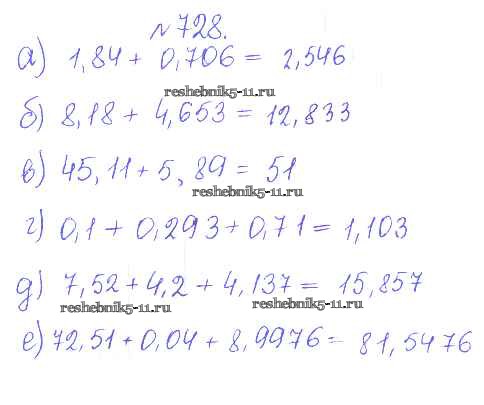 №728.
а) 1,84 + 0,706 = 2,546
reshebnik5-11.ru
б) 8,18 + 4,653 = 12,833
в) 45,11 + 5,89 = 51
reshebnik5-11.ru
г) 0,1 + 0,293 + 0,71 = 1,103
д) 7,52 + 4,2 + 4,137 = 15,857
reshebnik5-11.ru reshebnik5-11.ru
е) 72,51 + 0,04 + 8,9976 = 81,5476